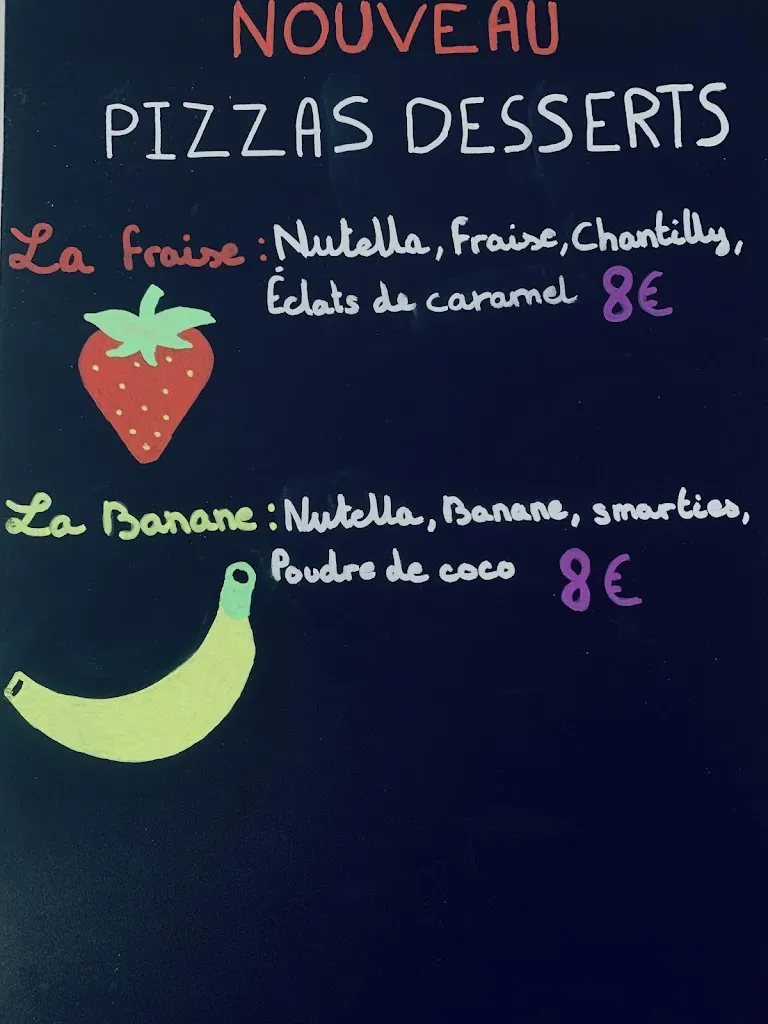 NOUVEAU
PIZZAS DESSERTS
La fraise : Nutella, fraise, Chantilly,
Éclats de caramel 8€
La Banane : Nutella, Banane, smarties,
Poudre de coco 8€